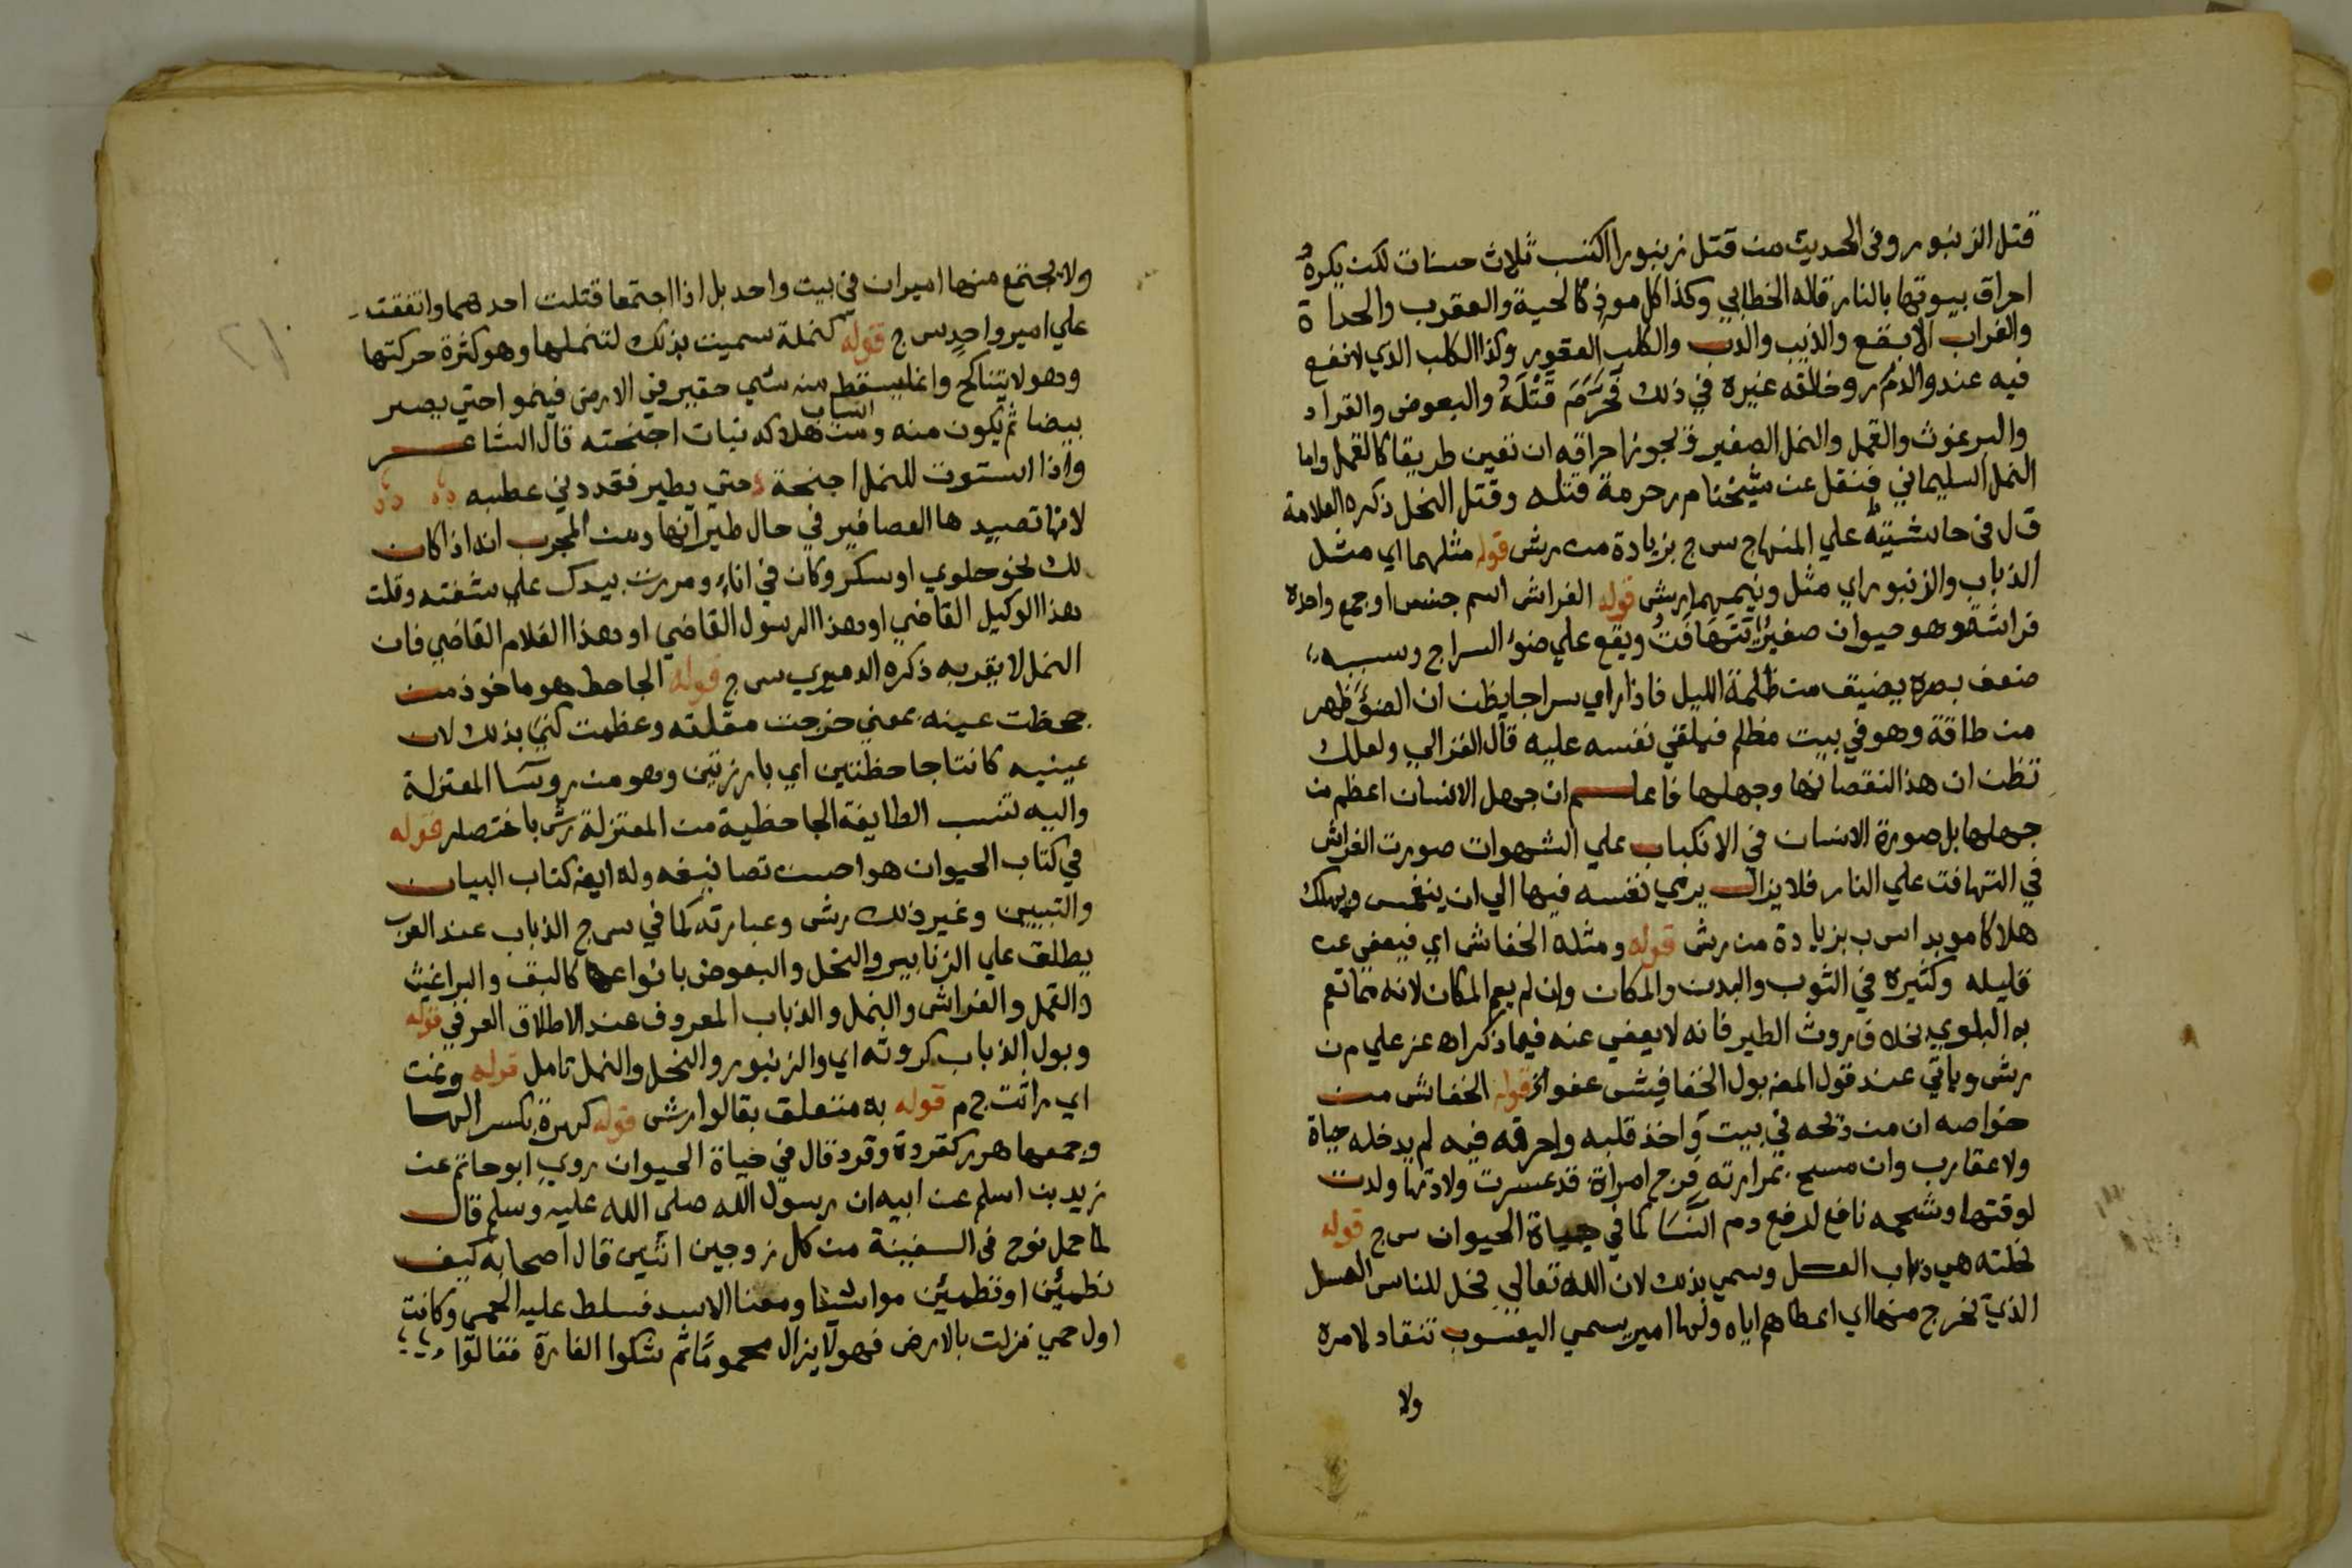 قتل الزنبور وفى الحديث من قتل زنبورا اكتسب ثلاث حسنات لكن يكره
احراق بيوتها بالنار قاله الخطابي وكذا كل موذ كالحية والعقرب والحداة
والغراب الابقع والذيب والدب والكلب العقور وكذا الكلب الذي لا نفع
فيه عند والدم ر وخالفه غيره في ذلك فحرم قتله والبعوض والقراد
والبرغوث والقمل والنمل الصغير ويجوز احراقه ان تعين طريقا كالقمل واما
النمل السليماني فنقل عن شيخنا م ر حرمة قتله وقتل النحل ذكره العلامة
ق ل فى حاشيته علي المنهاج س ج بزيادة من ر ش قوله مثلهما اي مثل
الذباب والزنبور اي مثل ونيمهما ر ش قوله الفراش اسم جنس او جمع واحده
فراشة وهو حيوان صغير يتهافت ويقع علي ضوء السراج وسببه
ضعف بصره يضيق من ظلمة الليل فاذا راي سراجا يظن ان الضوء ظهر
من طاقة وهو في بيت مظلم فيلقي نفسه عليه قال الغزالي ولعلك
تظن ان هذا لنقصانها وجهلها فاعلم ان جهل الانسان اعظم من
جهلها بل صورة الانسان في الانكباب علي الشهوات صورت الفراش
في التهافت علي النار فلا يزال يرمي نفسه فيها الي ان ينغمس ويهلك
هلاكا موبدا س ب بزيادة من ر ش قوله ومثله الخفاش اي فيعفي عن
قليله وكثيره في الثوب والبدن والمكان وان لم يعم المكان لانه مما تعم
به البلوي بخلاف روث الطير فانه لا يعفي عنه فيما ذكر اه عز علي م ن
ر ش وياتي عند قول المص بول الخفافيش عفو الخ قوله الخفاش من
خواصه ان من ذبحه في بيت واخذ قلبه واحرقه فيه لم يدخله حياة
ولا عقارب وان مسح بمرارته فرج امراة قد عسرت ولادتها ولدت
لوقتها وشحمه نافع لدفع دم النسا كما في حياة الحيوان س ج قوله
نحلته هي ذباب العسل وسمي بذلك لان الله تعالي نحل للناس العسل
الذي يخرج منها اي اعطاهم اياه ولها امير يسمي اليعسوب تنقاد لامره
ولا
ولا يجتمع منها اميران في بيت واحد بل اذا اجتمعا قتلت احدهما واتفقت
علي امير واحد س ج قوله كنملة سميت بذلك لتنملها وهو كثرة حركتها
وهو لا يتناكح وانما يسقط منه شي حقير في الارض فينموا حتي يصير
بيضا ثم يكون منه ومن اسباب هلاكه نبات اجنحته قال الشاعر
واذا استوت للنمل اجنحة حتي يطير فقد دني عطبه
لانها تصيدها العصافير في حال طيرانها ومن المجرب انه اذا كان
لك نحو حلوي او سكر وكان في اناء ومررت بيدك علي شفته وقلت
هذا الوكيل القاضي او هذا الرسول القاضي او هذا الغلام القاضي فان
النمل لا يقربه ذكره الدميري س ج قوله الجاحظ هو ماخوذ من
جحظت عينه بمعني خرجت مقلته وعظمت كني بذلك لان
عينيه كانتا جاحظتين اي بارزتين وهو من روسا المعتزلة
واليه تنسب الطايفة الجاحظية من المعتزلة ر ش باختصار قوله
في كتاب الحيوان هو احسن تصانيفه وله ايضا كتاب البيان
والتبيين وغير ذلك ر ش وعبارته كما في س ج الذباب عند العرب
يطلق علي الزنابير والنحل والبعوض بانواعها كالبق والبراغيث
والقمل والفراش والنمل والذباب المعروف عند الاطلاق العرفي قوله
وبول الذباب كروثه اي والزنبور والنحل والنمل تامل قوله ونمت
اي راثت ج م قوله به متعلق بقالوا ر ش قوله كهرة بكسر الها
وجمعها هرر كقردة وقرد قال في حياة الحيوان روي ابو حاتم عن
زيد بن اسلم عن ابيه ان رسول الله صلي الله عليه وسلم قال
لما حمل نوح فى السفينة من كل زوجين اثنين قال اصحابه كيف
نطمئن او تطمئن مواشينا ومعنا الاسد فسلط عليه الحمي وكانت
اول حمي نزلت بالارض فهو لا يزال محموما ثم شكوا الفارة فقالوا